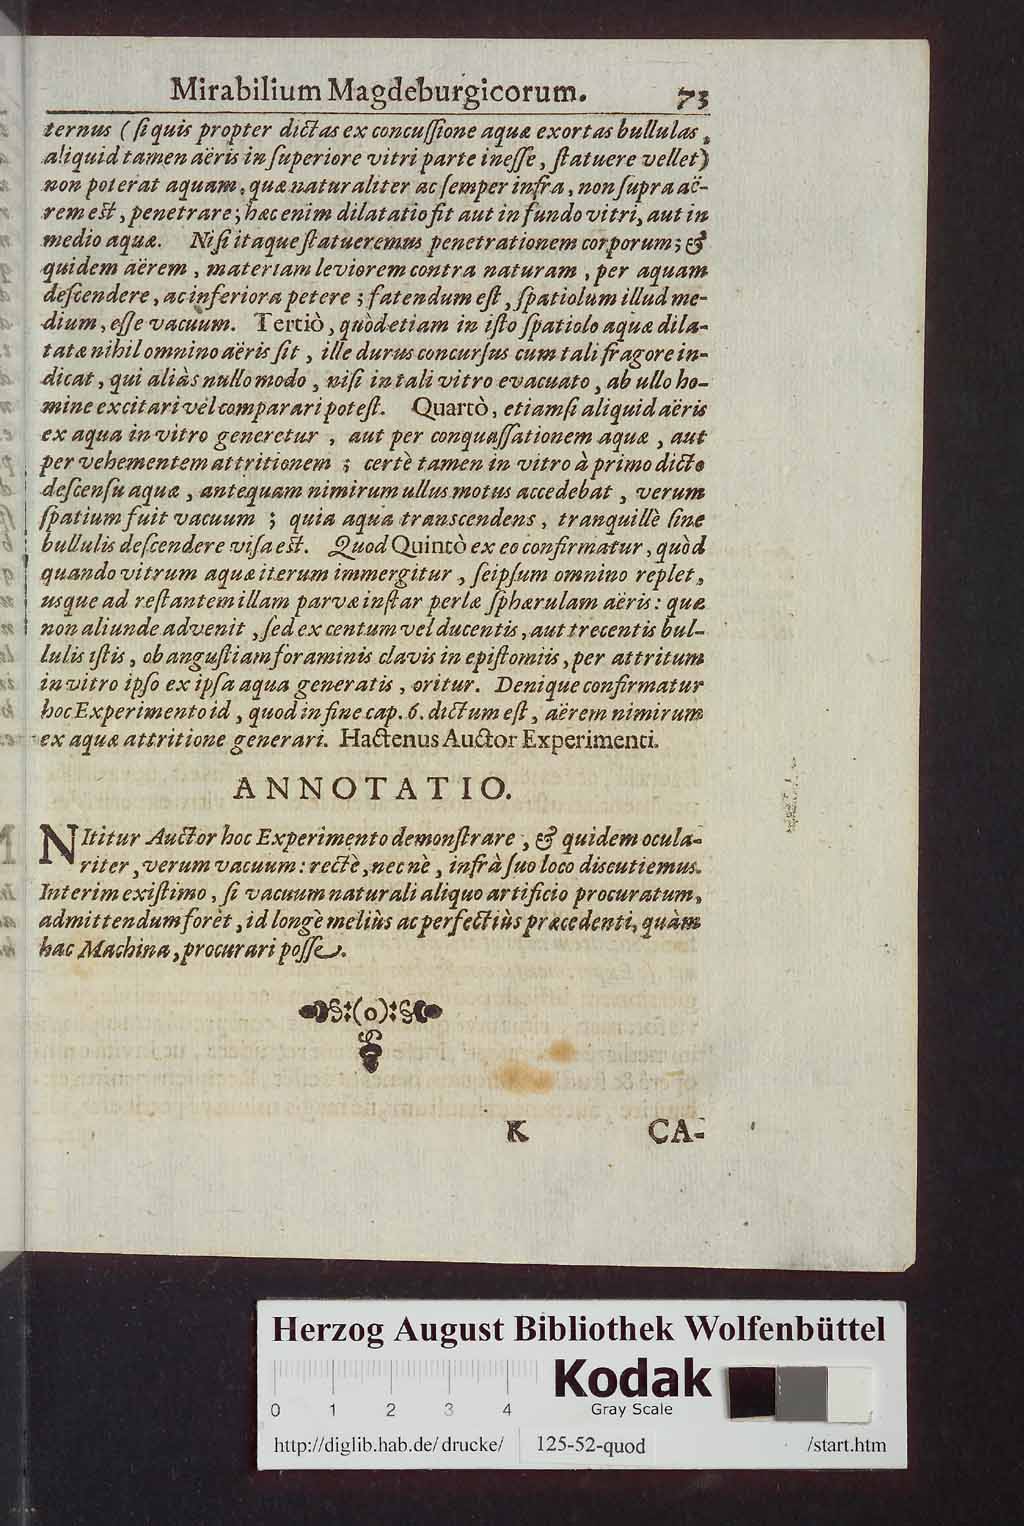 Mirabilium Magdeburgicorum. 73
ternus ( ſi quis propter dictas ex concuſſione aquæ exortas bullulas,
aliquid tamen aëris in ſuperiore vitri parte ineſſe, ſtatuere vellet)
non poterat aquam, quæ naturaliter ac ſemper infra, non ſupra aë-
rem eſt, penetrare; hæc enim dilatatio fit aut in fundo vitri, aut in
medio aquæ. Niſi itaque ſtatueremus penetrationem corporum; &
quidem aërem, materiam leviorem contra naturam, per aquam
deſcendere, ac inferiora petere; fatendum eſt, ſpatiolum illud me-
dium, eſſe vacuum. Tertiò, quòd etiam in iſto ſpatiolo aquæ dila-
tatæ nihil omnino aëris ſit, ille durus concurſus cum tali fragore in-
dicat, qui aliàs nullo modo, niſi in tali vitro evacuato, ab ullo ho-
mine excitari vel comparari poteſt. Quartò, etiamſi aliquid aëris
ex aqua in vitro generetur, aut per conquaſſationem aquæ, aut
per vehementem attritionem; certè tamen in vitro à primo dicto
deſcenſu aquæ, antequam nimirum ullus motus accedebat, verum
ſpatium fuit vacuum; quia aqua transcendens, tranquillè ſine
bullulis deſcendere viſa eſt. Quod Quintò ex eo confirmatur, quòd
quando vitrum aquæ iterum immergitur, ſeipſum omnino replet,
usque ad reſtantem illam parvæ inſtar perlæ ſphærulam aëris: quæ
non aliunde advenit, ſed ex centum vel ducentis, aut trecentis bul-
lulis iſtis, ob anguſtiam foraminis clavis in epiſtomiis, per attritum
in vitro ipſo ex ipſa aqua generatis, oritur. Denique confirmatur
hoc Experimento id, quod in fine cap. 6. dictum eſt, aërem nimirum
ex aquæ attritione generari. Hactenus Auctor Experimenti.
ANNOTATIO.
NItitur Auctor hoc Experimento demonſtrare, & quidem ocula-
riter, verum vacuum: rectè, nec nè, infrà ſuo loco discutiemus.
Interim exiſtimo, ſi vacuum naturali aliquo artificio procuratum,
admittendum forèt, id longè meliùs ac perfectiùs præcedenti, quàm
hac Machina, procurari poſſe.
§:(o):§
K CA-
Herzog August Bibliothek Wolfenbüttel
Kodak
Gray Scale
0 1 2 3 4
http://diglib.hab.de/drucke/ 125-52-quod /start.htm